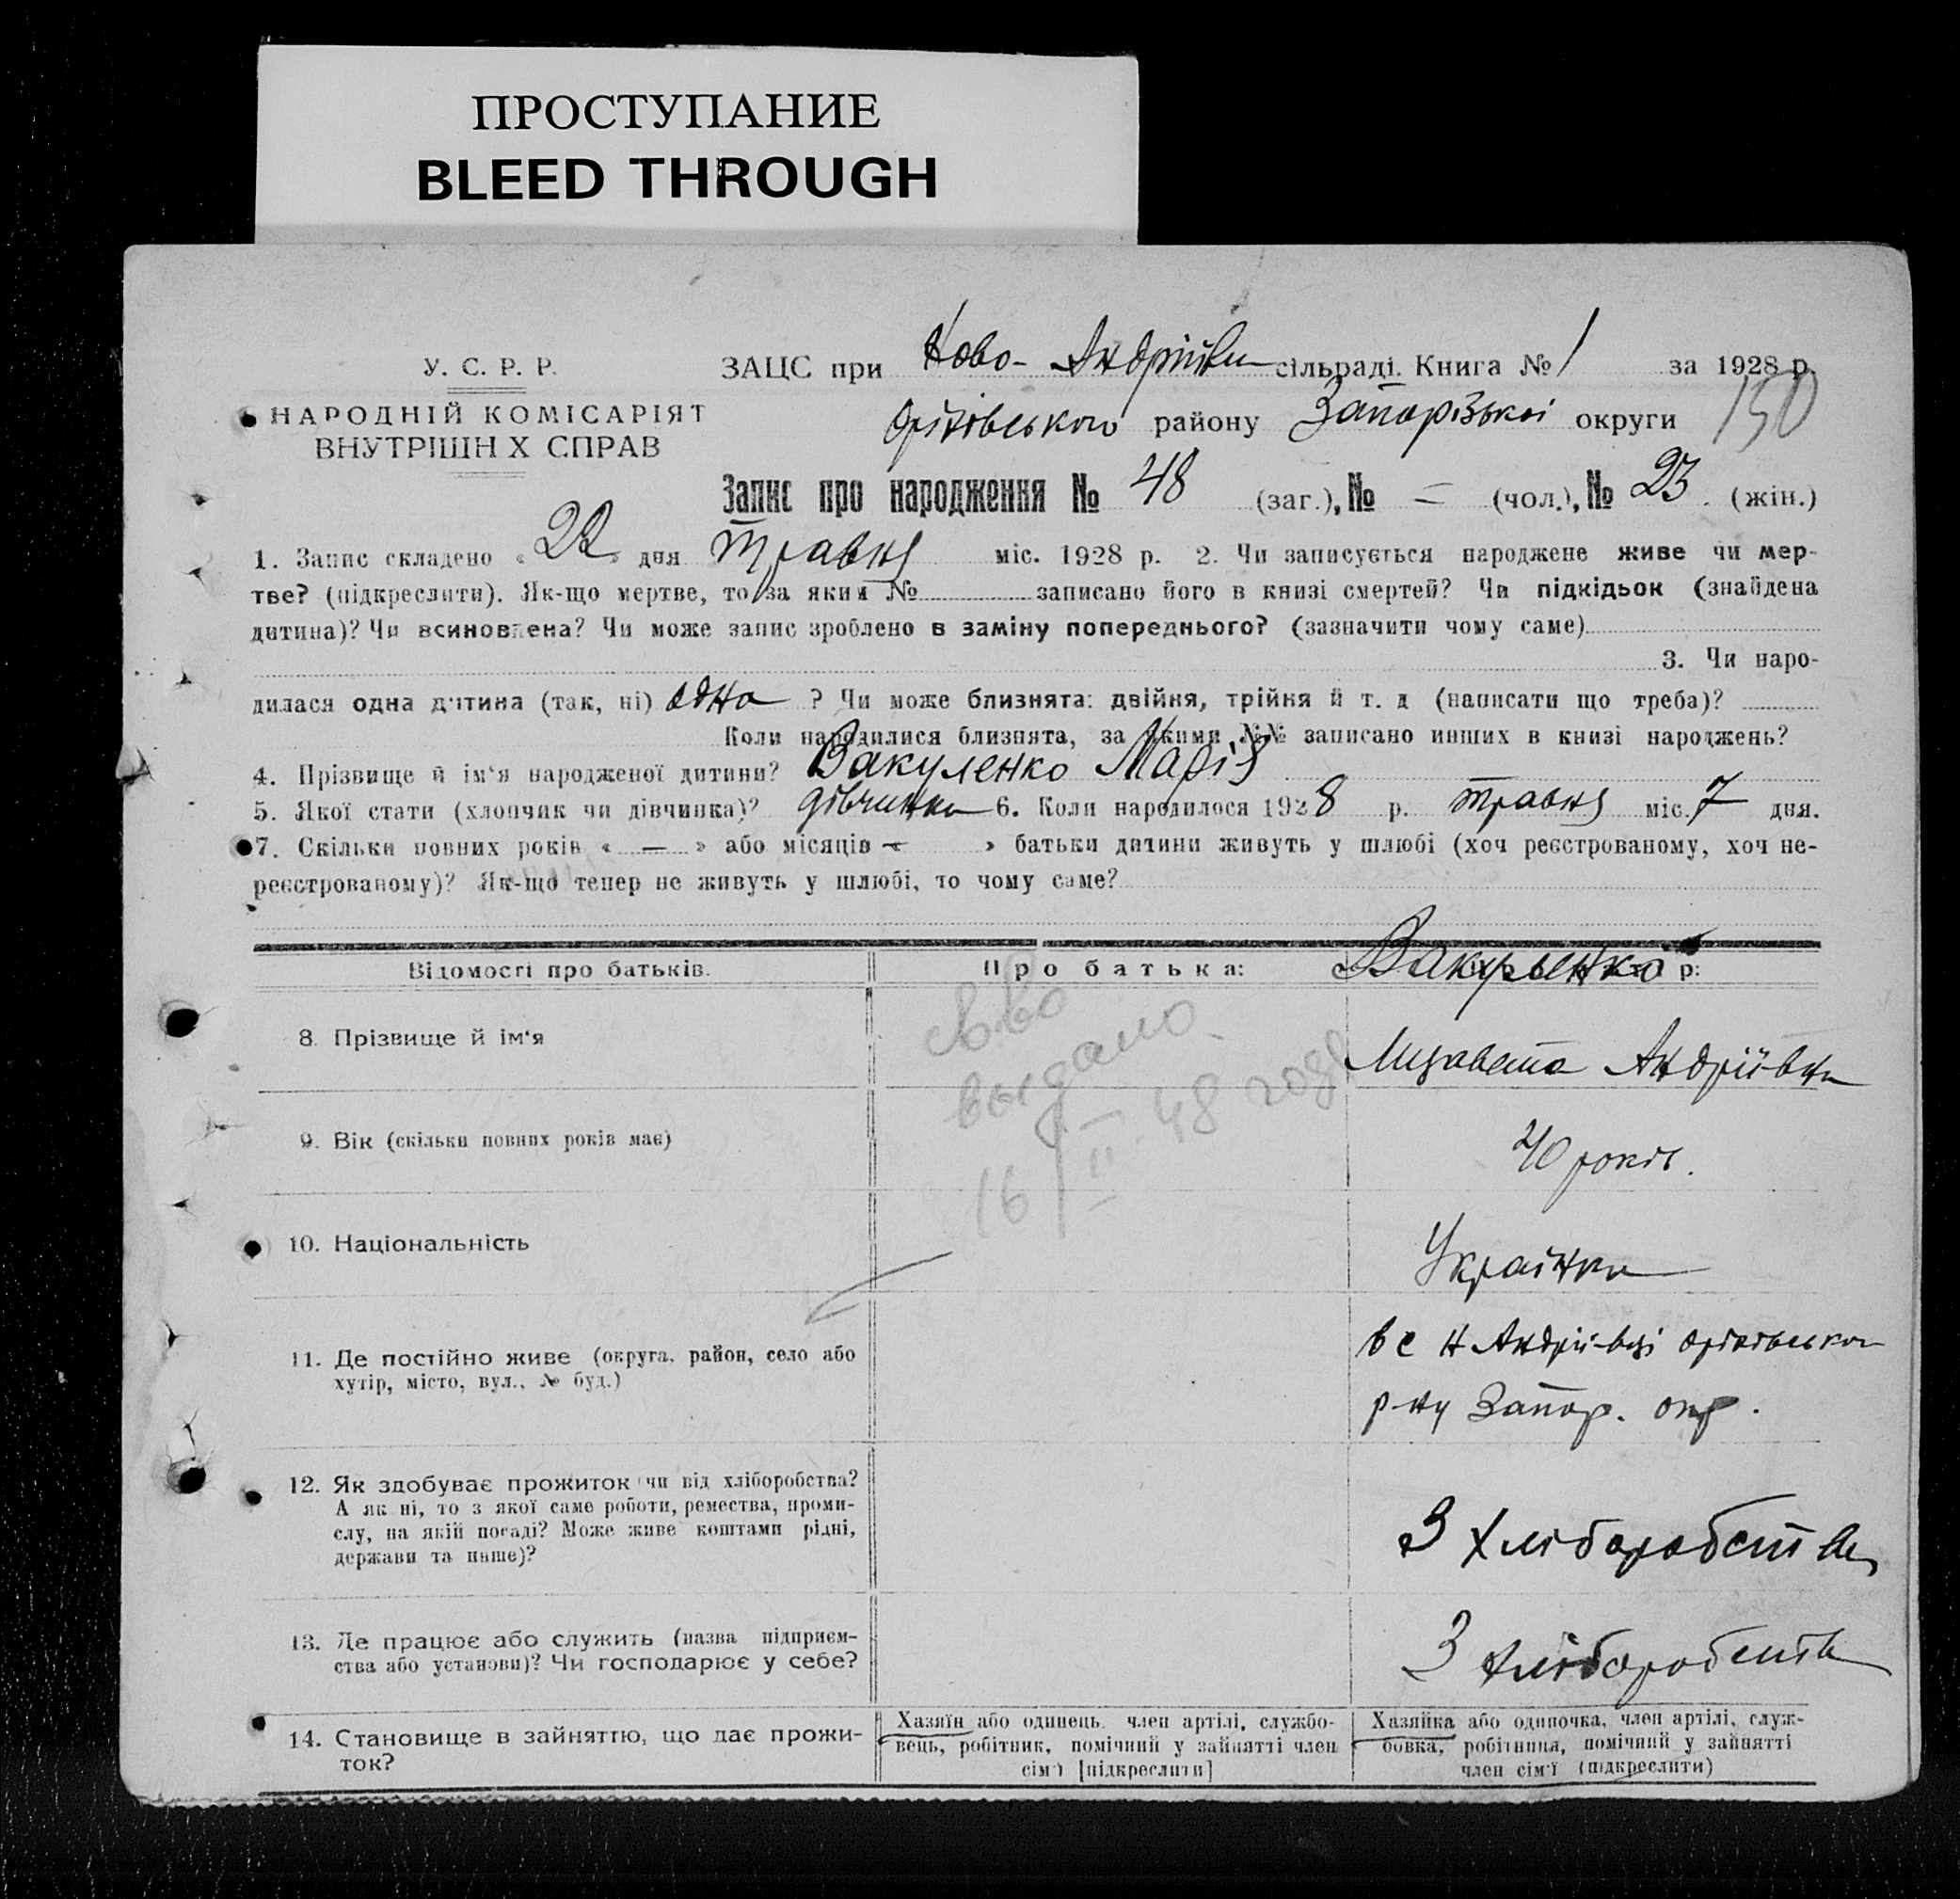 ПРОСТУПАНИЕ
BLEED THROUGH
У. С. Р. Р.
НАРОДНІЙ КОМІСАРІЯТ
ВНУТРІШН Х СПРАВ
ЗАЦС при Ново-Андріївці сільраді. Книга № 1 за 1928 р.
Оріхівського району Запорізької округи 150
Запис про народження № 48 (заг.), № — (чол.), № 23. (жін.)
1. Запис складено « 22 » дня травня міс. 1928 р. 2. Чи записується народжене живе чи мер-
тве? (підкреслити). Як-що мертве, то за яким № записано його в книзі смертей? Чи підкідьок (знайдена
дитина)? Чи всиновлена? Чи може запис зроблено в заміну попереднього? (зазначити чому саме)
3. Чи наро-
дилася одна дитина (так, ні) одна ? Чи може близнята: двійня, трійня й т. д (написати що треба)?
Коли народилися близнята, за якими №№ записано инших в книзі народжень?
4. Прізвище й ім‘я народженої дитини? Вакуленко Марія
5. Якої стати (хлопчик чи дівчинка)? дівчинка 6. Коли народилося 1928 р. травня міс. 7 дня.
7. Скільки повних років « — » або місяців — » батьки дитини живуть у шлюбі (хоч реєстрованому, хоч не-
реєстрованому)? Як-що тепер не живуть у шлюбі, то чому саме?
Відомості про батьків.
Про батька:
р:
8. Прізвище й ім‘я
Вакуленко
Лизавета Андріївна
св-во
выдано
16/II-48 года
9. Вік (скільки повних років має)
40 років.
10. Національність
Українка
11. Де постійно живе (округа, район, село або
хутір, місто, вул., № буд.)
в с Н Андріївці Оріхівського
р-ну Запор. окр.
12. Як здобуває прожиток чи від хліборобства?
А як ні, то з якої саме роботи, ремества, проми-
слу, на якій посаді? Може живе коштами рідні,
держави та инше)?
З хліборобства
13. Де працює або служить (назва підприєм-
ства або установи)? Чи господарює у себе?
З хліборобства
14. Становище в зайняттю, що дає прожи-
ток?
Хазяїн або одинець, член артілі, службо-
вець, робітник, помічний у зайнятті член
сім‘ї [підкреслити]
Хазяйка або одиночка, член артілі, служ-
бовка, робітниця, помічний у зайнятті
член сім‘ї (підкреслити)